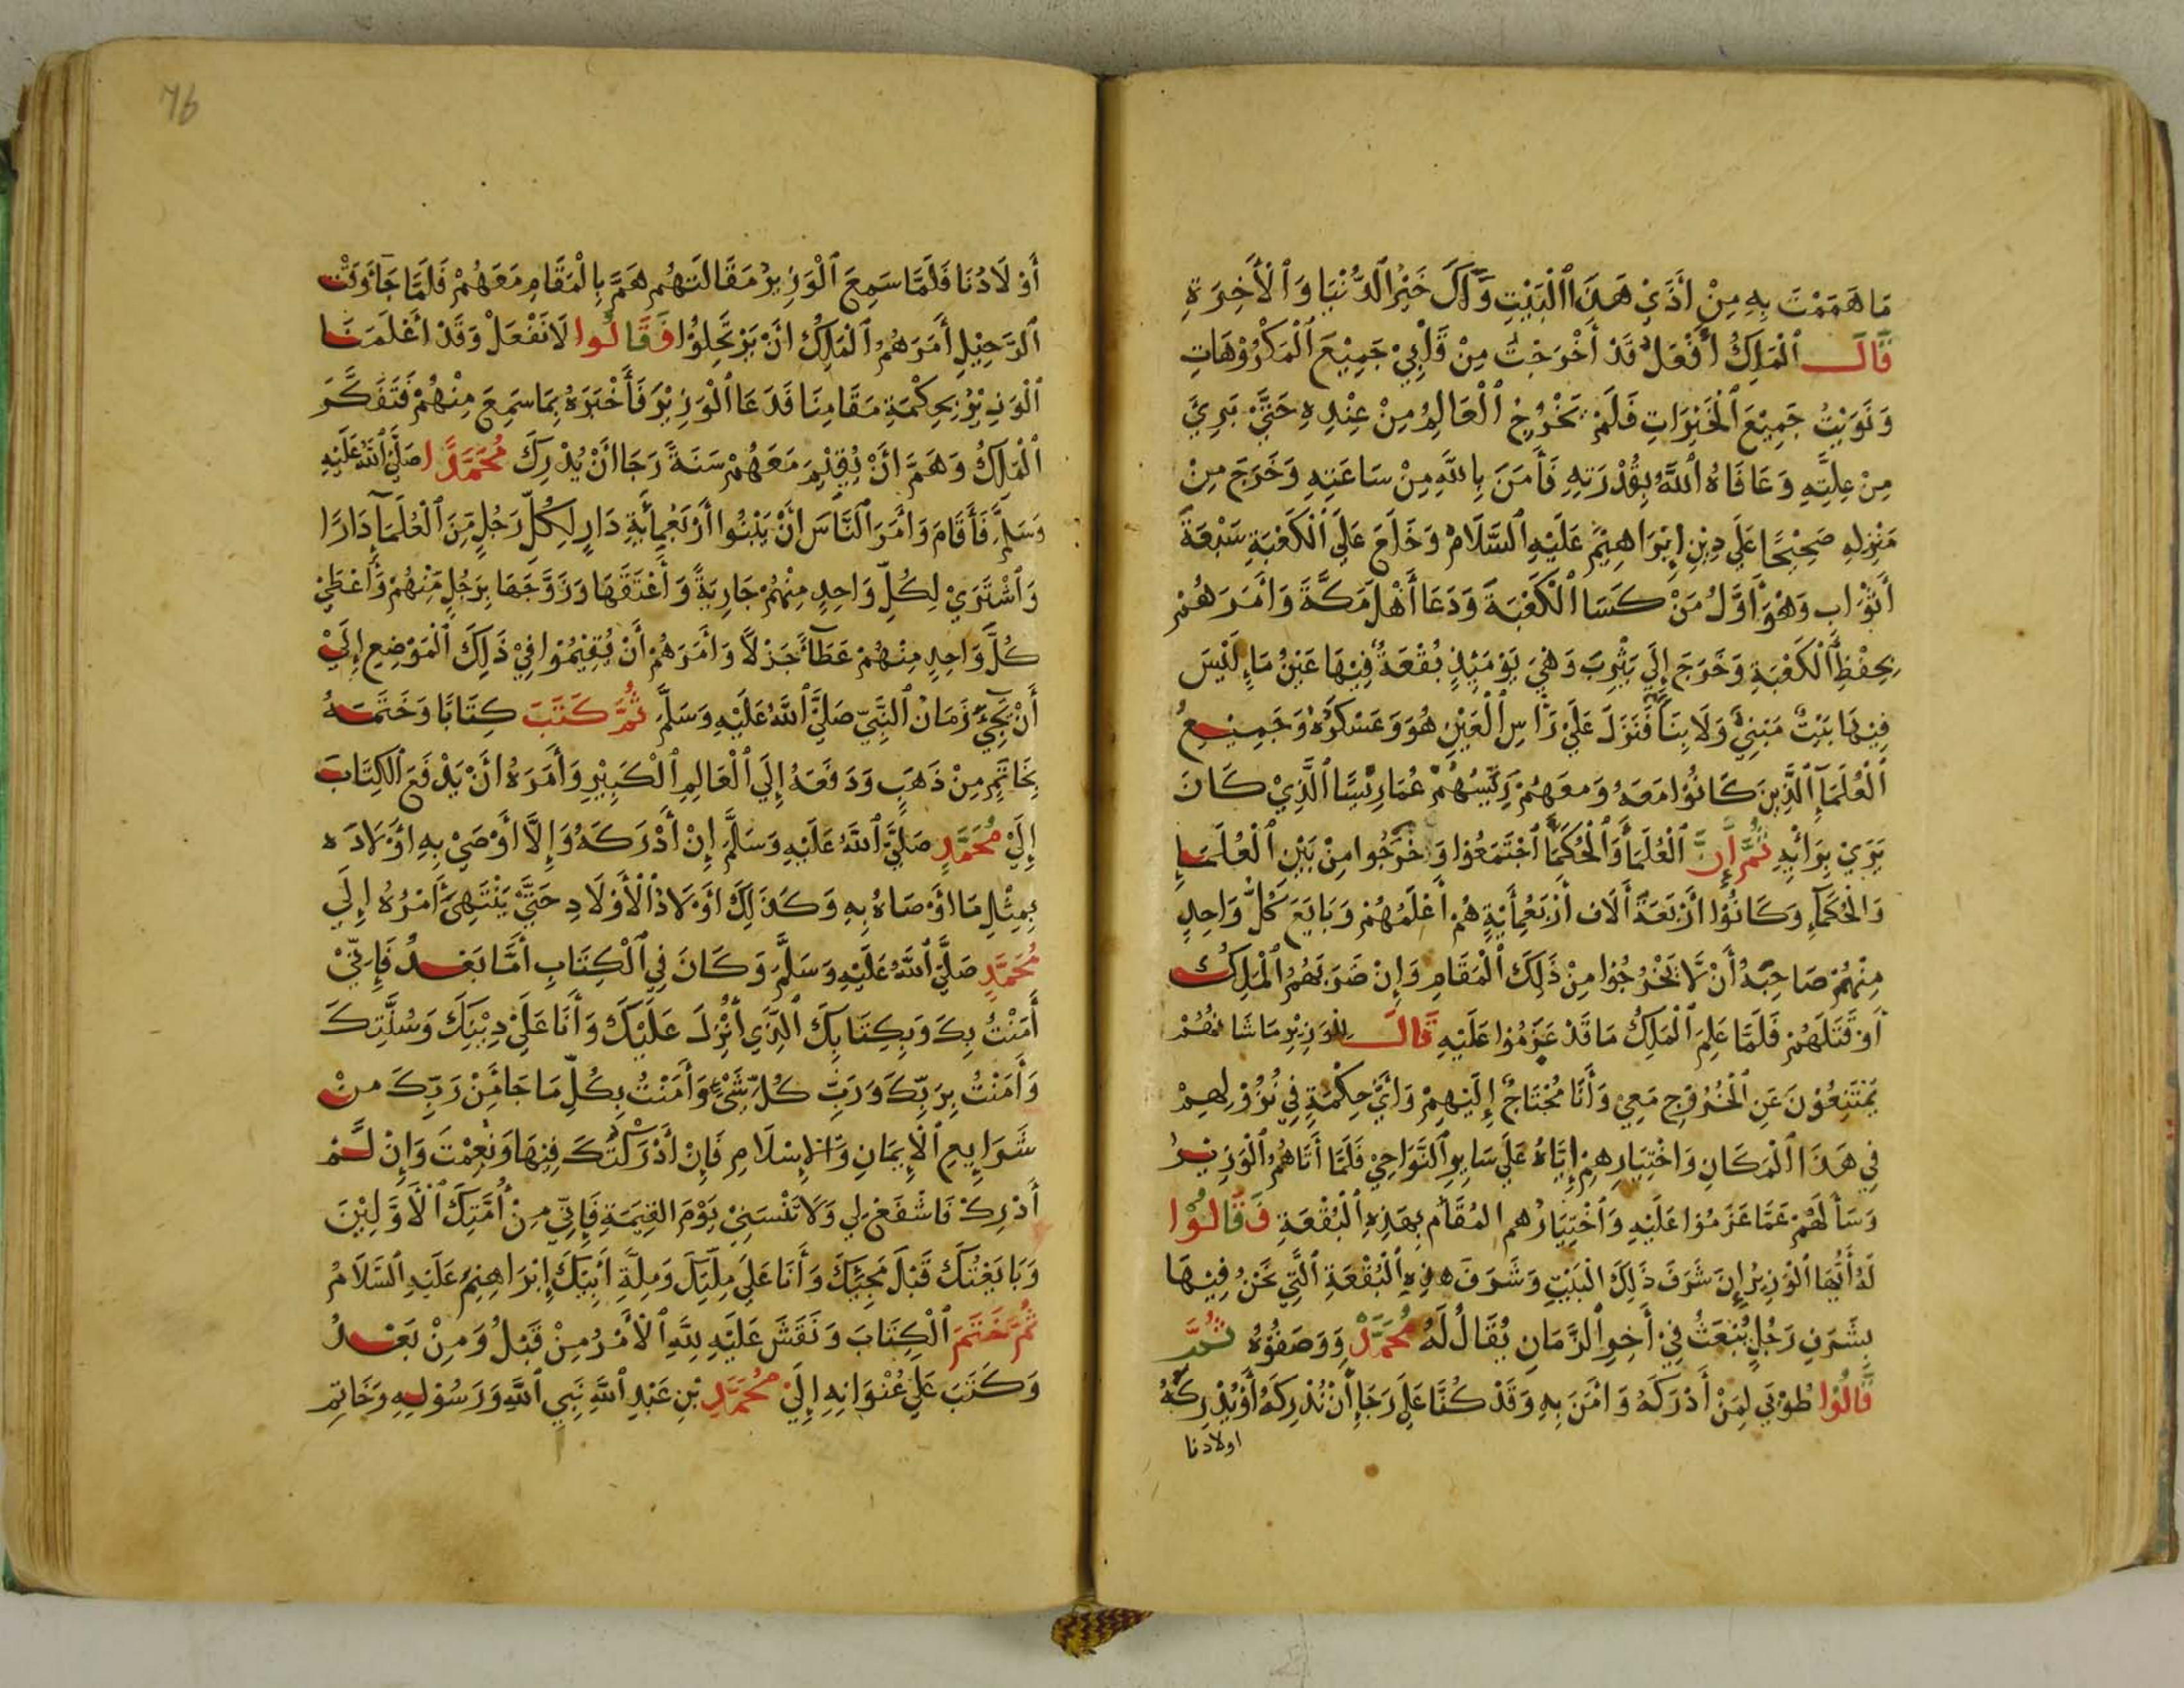 مَا هَمَمْتَ بِهِ مِنْ اَذَيْ هَذَا الْبَيْتِ وَلَكَ خَيْرُ الدُّنْيَا وَالْأَخِرَةِ
قَالَ الْمَلِكُ أَفْعَلُ قَدْ أَخْرَجْتُ مِنْ قَلْبِيْ جَمِيْعَ الْمَكْرُوْهَاتِ
وَنَوَيْتُ جَمِيْعَ الْخَيْرَاتِ فَلَمْ يَخْرُجْ الْعَالِمُ مِنْ عِنْدِهِ حَتَّيْ بَرِيَ
مِنْ عِلَّتِهِ وَعَافَاهُ اللَّهُ بِقُدْرَتِهِ فَأَمَنَ بِاللَّهِ مِنْ سَاعَتِهِ وَخَرَجَ مِنْ
مَنْزِلِهِ صَحِيْحًا عَلَي دِيْنِ إِبْرَاهِيْمَ عَلَيْهِ السَّلَامُ وَخَلَعَ عَلَي الْكَعْبَةِ سَبْعَةَ
أَثْوَابٍ وَهُوَ أَوَّلُ مَنْ كَسَا الْكَعْبَةَ وَدَعَا أَهْلَ مَكَّةَ وَأَمَرَهُمْ
بِحِفْظِ الْكَعْبَةِ وَخَرَجَ إِلَي يَثْرِبَ وَهْيَ يَوْمَئِذٍ بُقْعَةٌ فِيْهَا عَيْنُ مَاءٍ لَيْسَ
فِيْهَا بَيْتٌ مَبْنِيٌّ وَلَا بِنَاءٌ فَنَزَلَ عَلَيْ رَأْسِ الْعَيْنِ هُوَ وَعَسْكَرُهُ وَجَمِيْعُ
الْعُلَمَاءِ الَّذِيْنَ كَانُوْا مَعَهُ وَمَعَهُمْ رَئِيْسُهُمْ عُمَارِيْسَا الَّذِيْ كَانَ
يَرَيْ بِرَائِهِ ثُمَّ إِنَّ الْعُلَمَاءَ وَالْحُكَمَاءَ اجْتَمَعُوْا وَخَرَجُوا مِنْ بَيْنِ الْعُلَمَاءِ
وَالْحُكَمَاءِ وَكَانُوْا أَرْبَعَةَ أَلَافٍ أَرْبَعُمِأَيْةٍ هُمْ أَعْلَمُهُمْ وَبَايَعَ كُلُّ وَاحِدٍ
مِنْهُمْ صَاحِبَهُ أَنْ لَّا يَخْرُجُوْا مِنْ ذَلِكَ الْمَقَامِ وَإِنْ ضَرَبَهُمُ الْمَلِكُ
أَوْ قَتَلَهُمْ فَلَمَّا عَلِمَ الْمَلِكُ مَا قَدْ عَزَمُوْا عَلَيْهِ قَالَ لِلْوَزِيْرِ مَا شَانُهُمْ
يَمْتَنِعُوْنَ عَنِ الْخُرُوْجِ مَعِيْ وَأَنَا مُحْتَاجٌ إِلَيْهِمْ وَأَيُّ حِكْمَةٍ فِي نُزُوْلِهِمْ
فِي هَذَا الْمَكَانِ وَاخْتِيَارِهِمْ إِيَّاهُ عَلَي سَايِرِ النَّوَاحِيْ فَلَمَّا أَتَاهُمُ الْوَزِيْرُ
وَسَأَلَهُمْ عَمَّا عَزَمُوْا عَلَيْهِ وَاخْتِيَارُهُمْ الْمُقَامَ بِهَذِهِ الْبُقْعَةِ فَقَالُوْا
لَهُ أَيُّهَا الْوَزِيْرُ إِنَ شَرَفَ ذَلِكَ الْبَيْتِ وَشَرَفَ هَذِهِ الْبُقْعَةِ الَّتِي نَحْنُ فِيْهَا
بِشَرَفِ رَجُلٍ يُبْعَثُ فِيْ أَخِرِ الزَّمَانِ يُقَالُ لَهُ مُحَمَّدٌ وَوَصَفُوْهُ ثُمَّ
قَالُوْا طُوْبَي لِمَنْ أَدْرَكَهُ وَامَنَ بِهِ وَقَدْ كُنَّا عَلَي رَجَاءِ أَنْ نُدْرِكَهُ أَوْ يُدْرِكَهُ
اولادنا
76
أَوْلَادُنَا فَلَمَّا سَمِعَ الْوَزِيْرُ مَقَالَتَهُمْ هَمَّ بِالْمَقَامِ مَعَهُمْ فَلَمَّا جَاءَ وَقْتُ
الرَّحِيْلِ أَمَرَهُمُ الْمَلِكُ أَنْ يَرْتَحِلُوْا فَقَالُوا لَا نَفْعَلْ وَقَدْ أَعْلَمَنَا
الْوَزِيْرُ بِحِكْمَةِ مَقَامِنَا فَدَعَا الْوَزِيْرَ فَأَخْبَرَهُ بِمَا سَمِعَ مِنْهُمْ فَتَفَكَّرَ
الْمَلِكُ وَهَمَّ أَنْ يُقِيْمَ مَعَهُمْ سَنَةً رَجَاأَنْ يُدْرِكَ مُحَمَّدًا صَلَّيَ اللَّهُ عَلَيْهِ
وَسَلَّمَ فَأَقَامَ وَأَمَرَ النَّاسَ أَنْ يَبْنُوا أَرْبَعُمِأَيَةِ دَارٍ لِكُلِّ رَجُلٍ مِّنَ الْعُلَمَاءِ دَارًا
وَاشْتَرَيْ لِكُلِّ وَاحِدٍ مِنْهُمْ جَارِيَةً وَأَعْتَقَهَا وَزَوَّجَهَا بِرَجُلٍ مِّنْهُمْ وَأَعْطَيْ
كُلَّ وَاحِدٍ مِنْهُمْ عَطَاءً جَزْلًا وَأَمَرَهُمْ أَنْ يُقِيْمُوْا فِيْ ذَلِكَ الْمَوْضِعِ إِلَيْ
أَنْ يَجِيْءَ زَمَانُ النَّبِيِّ صَلَّيَ اللَّهُ عَلَيْهِ وَسَلَّمَ ثُمَّ كَتَبَ كِتَابًا وَخَتَمَهُ
بِخَاتَمٍ مِنْ ذَهَبٍ وَدَفَعَهُ إِلَي الْعَالِمِ الْكَبِيْرِ وَأَمَرَهُ أَنْ يَدْفَعَ الْكِتَابَ
إِلَيْ مُحَمَّدٍ صَلَّيَ اللَّهُ عَلَيْهِ وَسَلَّمَ إِنْ أَدْرَكَهُ وَإِلَّا أَوْصَيْ بِهِ أَوْلَادَهُ
بِمِثْلِ مَا أَوْصَاهُ بِهِ وَكَذَلِكَ أَوْلَادُ الْأَوْلَادِ حَتَّيْ يَنْتَهِيَ أَمْرُهُ إِلَي
مُحَمَّدٍ صَلَّيَ اللَّهُ عَلَيْهِ وَسَلَّمَ وَكَانَ فِي الْكِتَابِ أَمَّا بَعْدُ فَإِنِّيْ
أَمَنْتُ بِكَ وَبِكِتَابِكَ الَّذِي أُنْزِلَ عَلَيْكَ وَأَنَا عَلَيْ دِيْنِكَ وَسُنَّتِكَ
وَأَمَنْتُ بِرَبِّكَ وَرَبِّ كُلِّ شَيْءٍ وَأَمَنْتُ بِكُلِّ مَا جَا مِنْ رَبِّكَ مِنْ
شَرَايِعِ الْإِيْمَانِ وَالْإِسْلَامِ فَإِنْ أَدْرَكْتُكَ فِيْهَا وَنِعْمَتْ وَإِنْ لَمْ
أُدْرِكْ فَاشْفَعْ لِي وَلَا تَنْسَنِيْ يَوْمَ الْقِيَمَةِ فَإِنِّي مِنْ أُمَّتِكَ الْأَوَّلِيْنَ
وَبَايَعْتُكَ قَبْلَ مَجِيْئِكَ وَأَنَا عَلَي مِلَّتِكَ وَمِلَّةِ أَبِيْكَ إِبْرَاهِيْمَ عَلَيْهِ السَّلَامُ
ثُمَّ خَتَمَ الْكِتَابَ وَنَقَشَ عَلَيْهِ لِلَّهِ الْأَمْرُ مِنْ قَبْلُ وَمِنْ بَعْدُ
وَكَتَبَ عَلَي عُنْوَانِهِ إِلَيْ مُحَمَّدِ بْنِ عَبْدِ اللَّهِ نَبِيِ اللَّهِ وَرَسُوْلِهِ وَخَاتِمِ